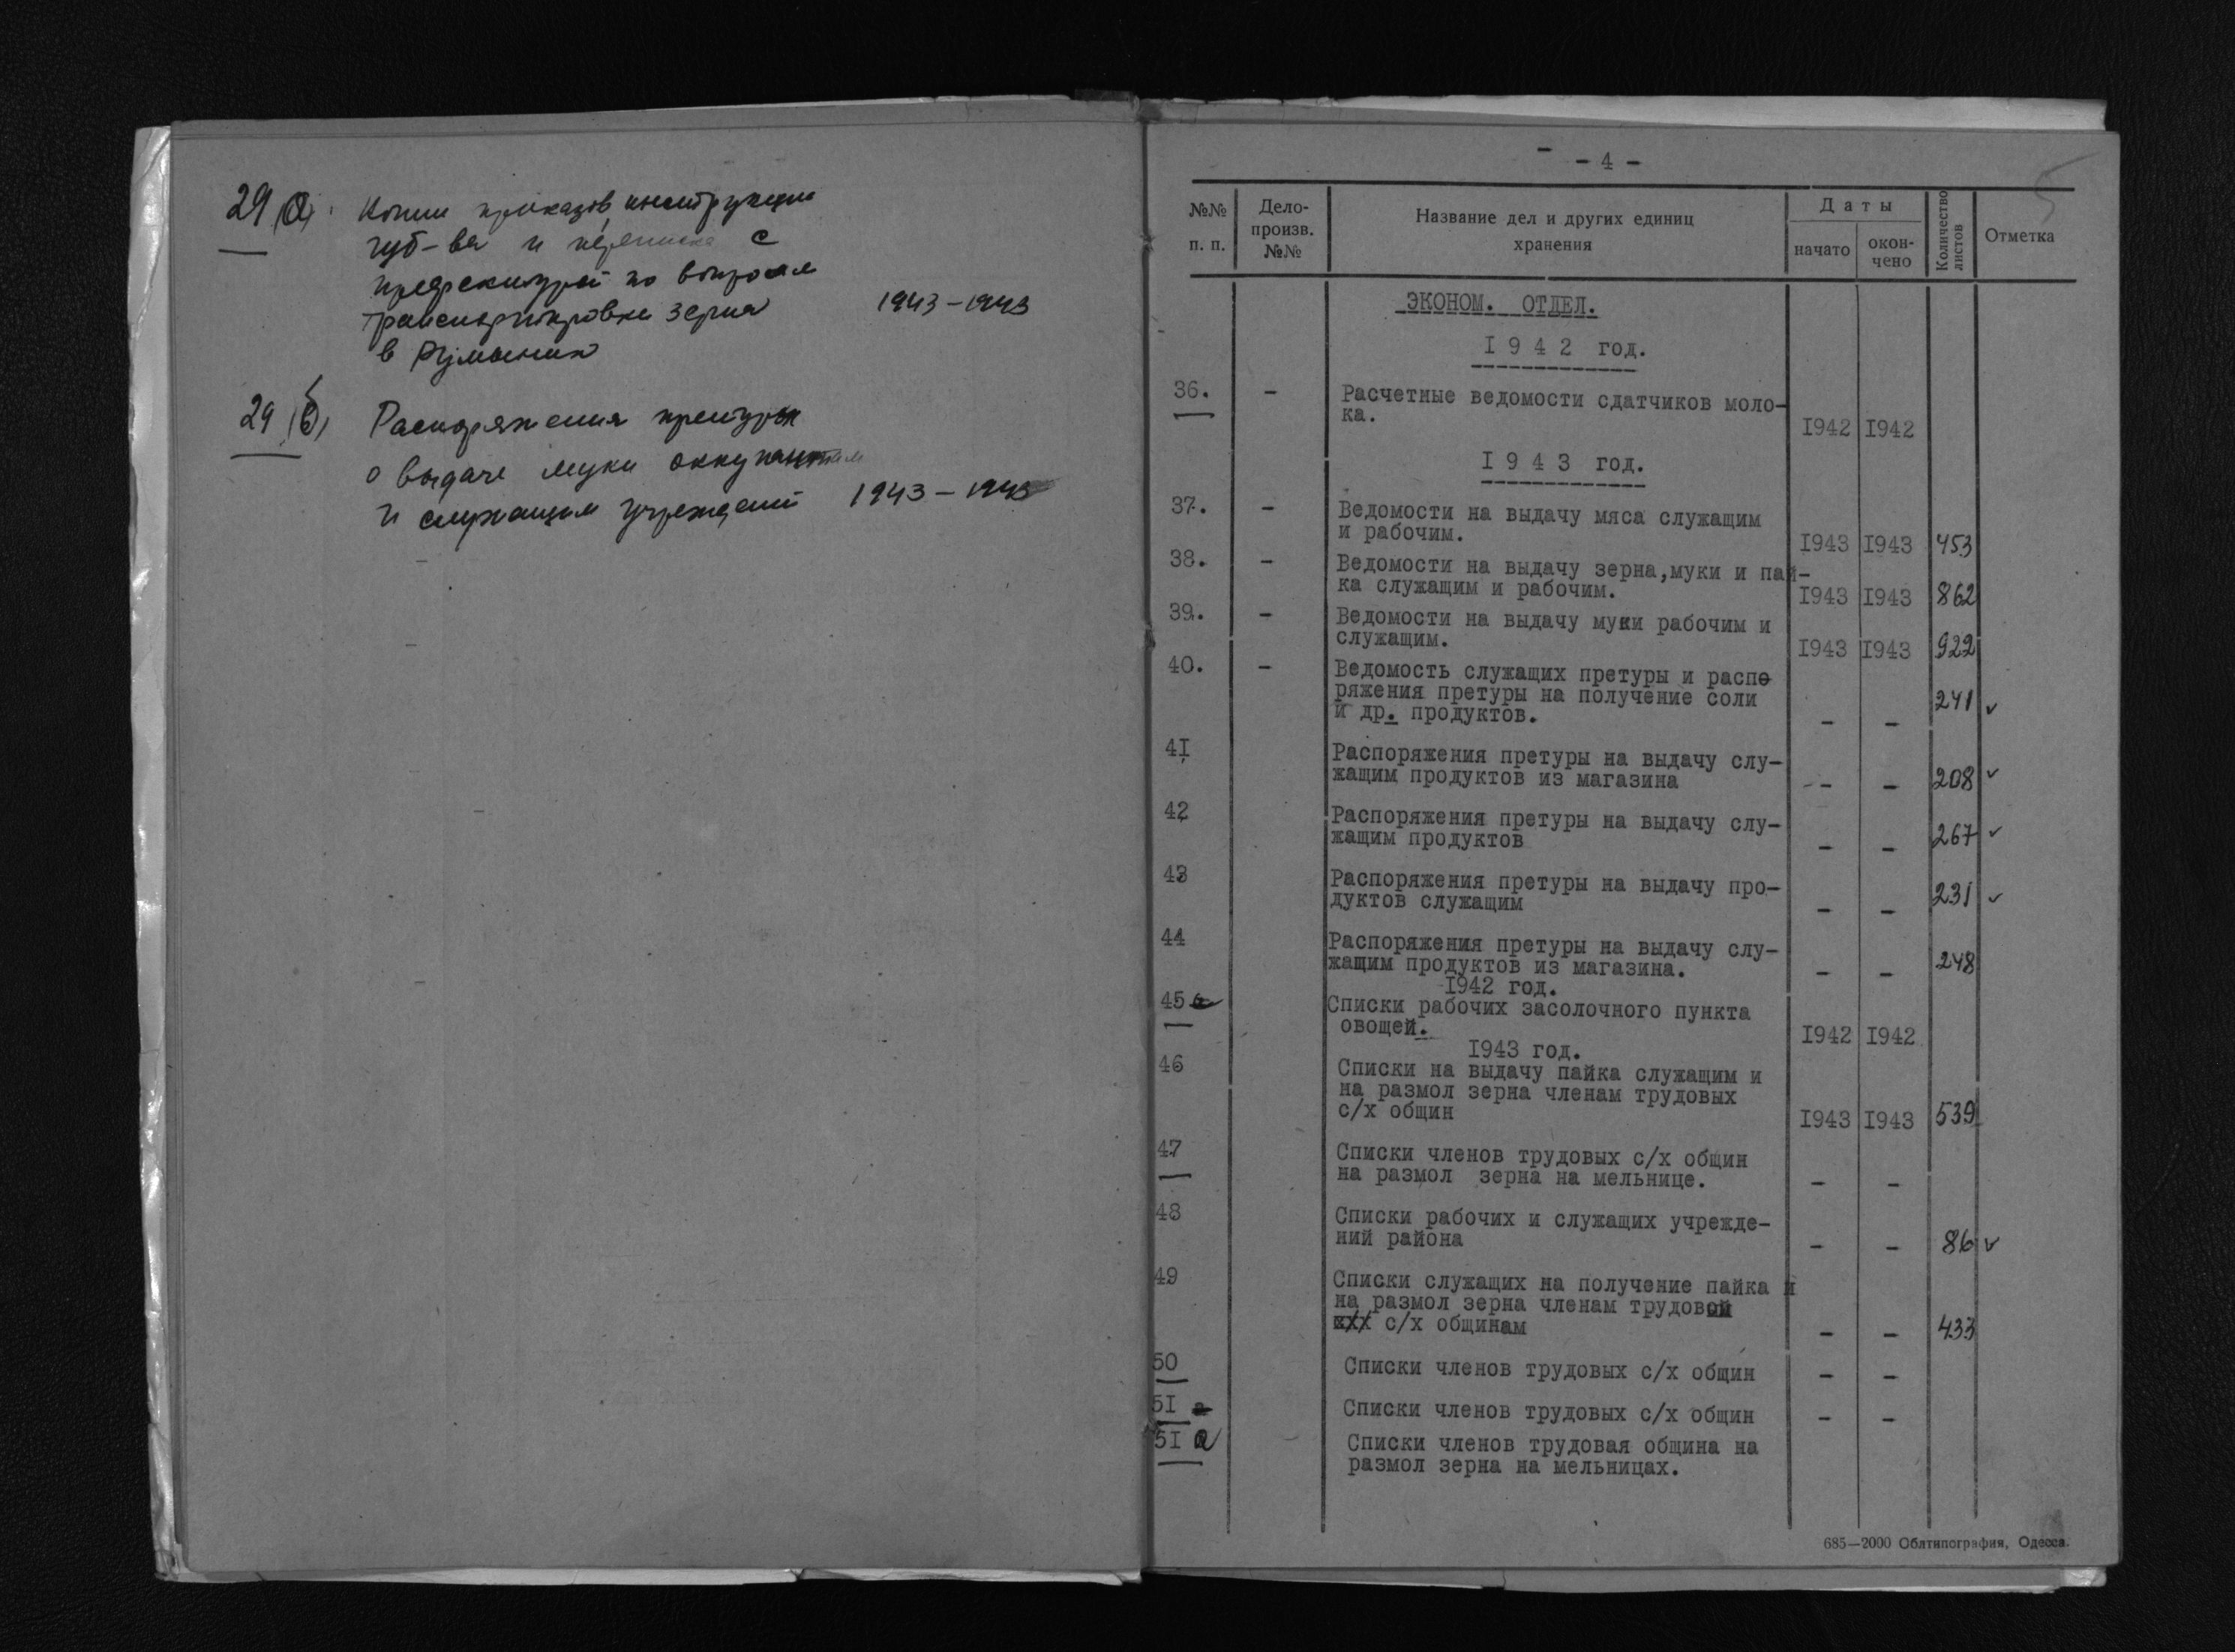 29 (а) Копии приказов, инструкции
губ-ва и переписка с
префектурой по вопросам
транспортировки зерна 1943-1943
в Румынию
29 (б) Распоряжения претуры
о выдаче муки оккупантам
и служащим учреждений 1943-1943
- 4 -
5
№№ п. п.
Дело-произв. №№
Название дел и других единиц
хранения
Даты
начато
окон-чено
Количество листов
Отметка
ЭКОНОМ. ОТДЕЛ.
I 9 4 2 год.
36. - Расчетные ведомости сдатчиков моло-
ка. I942 I942
I 9 4 3 год.
37. - Ведомости на выдачу мяса служащим
и рабочим. I943 I943 453
38. - Ведомости на выдачу зерна,муки и пай-
ка служащим и рабочим. I943 I943 862
39. - Ведомости на выдачу муки рабочим и
служащим. I943 I943 922
40. - Ведомость служащих претуры и распо
ряжения претуры на получение соли
и др. продуктов. - - 241 ✓
4I Распоряжения претуры на выдачу слу-
жащим продуктов из магазина - - 208 ✓
42 Распоряжения претуры на выдачу слу-
жащим продуктов - - 267 ✓
43 Распоряжения претуры на выдачу про-
дуктов служащим - - 231 ✓
44 Распоряжения претуры на выдачу слу-
жащим продуктов из магазина. - - 248
I942 год.
45 Списки рабочих засолочного пункта
овощей. I942 I942
I943 год.
46 Списки на выдачу пайка служащим и
на размол зерна членам трудовых
с/х общин I943 I943 539
47 Списки членов трудовых с/х общин
на размол зерна на мельнице. - -
48 Списки рабочих и служащих учрежде-
ний района - - 86 ✓
49 Списки служащих на получение пайка и
на размол зерна членам трудовой
с/х общинам - - 433
50 Списки членов трудовых с/х общин - -
5I Списки членов трудовых с/х общин - -
5I а Списки членов трудовая община на
размол зерна на мельницах.
685—2000 Облтипография, Одесса.